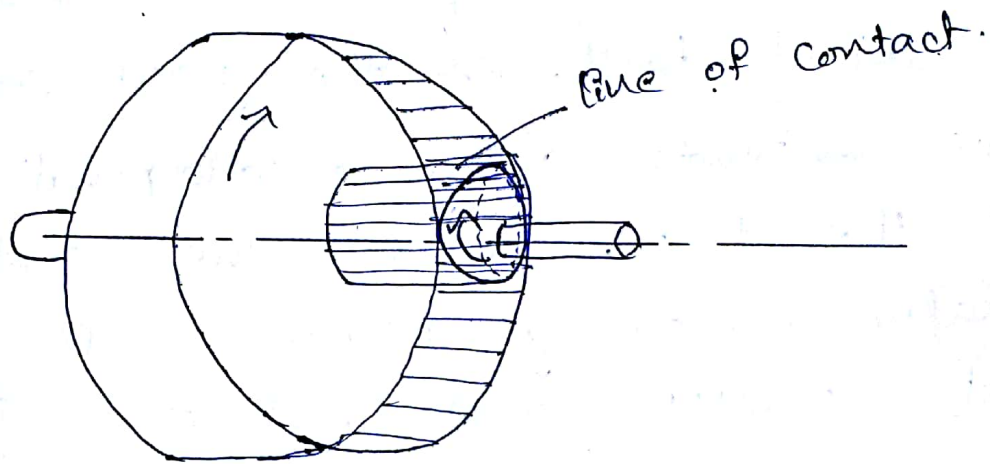 line of contact.